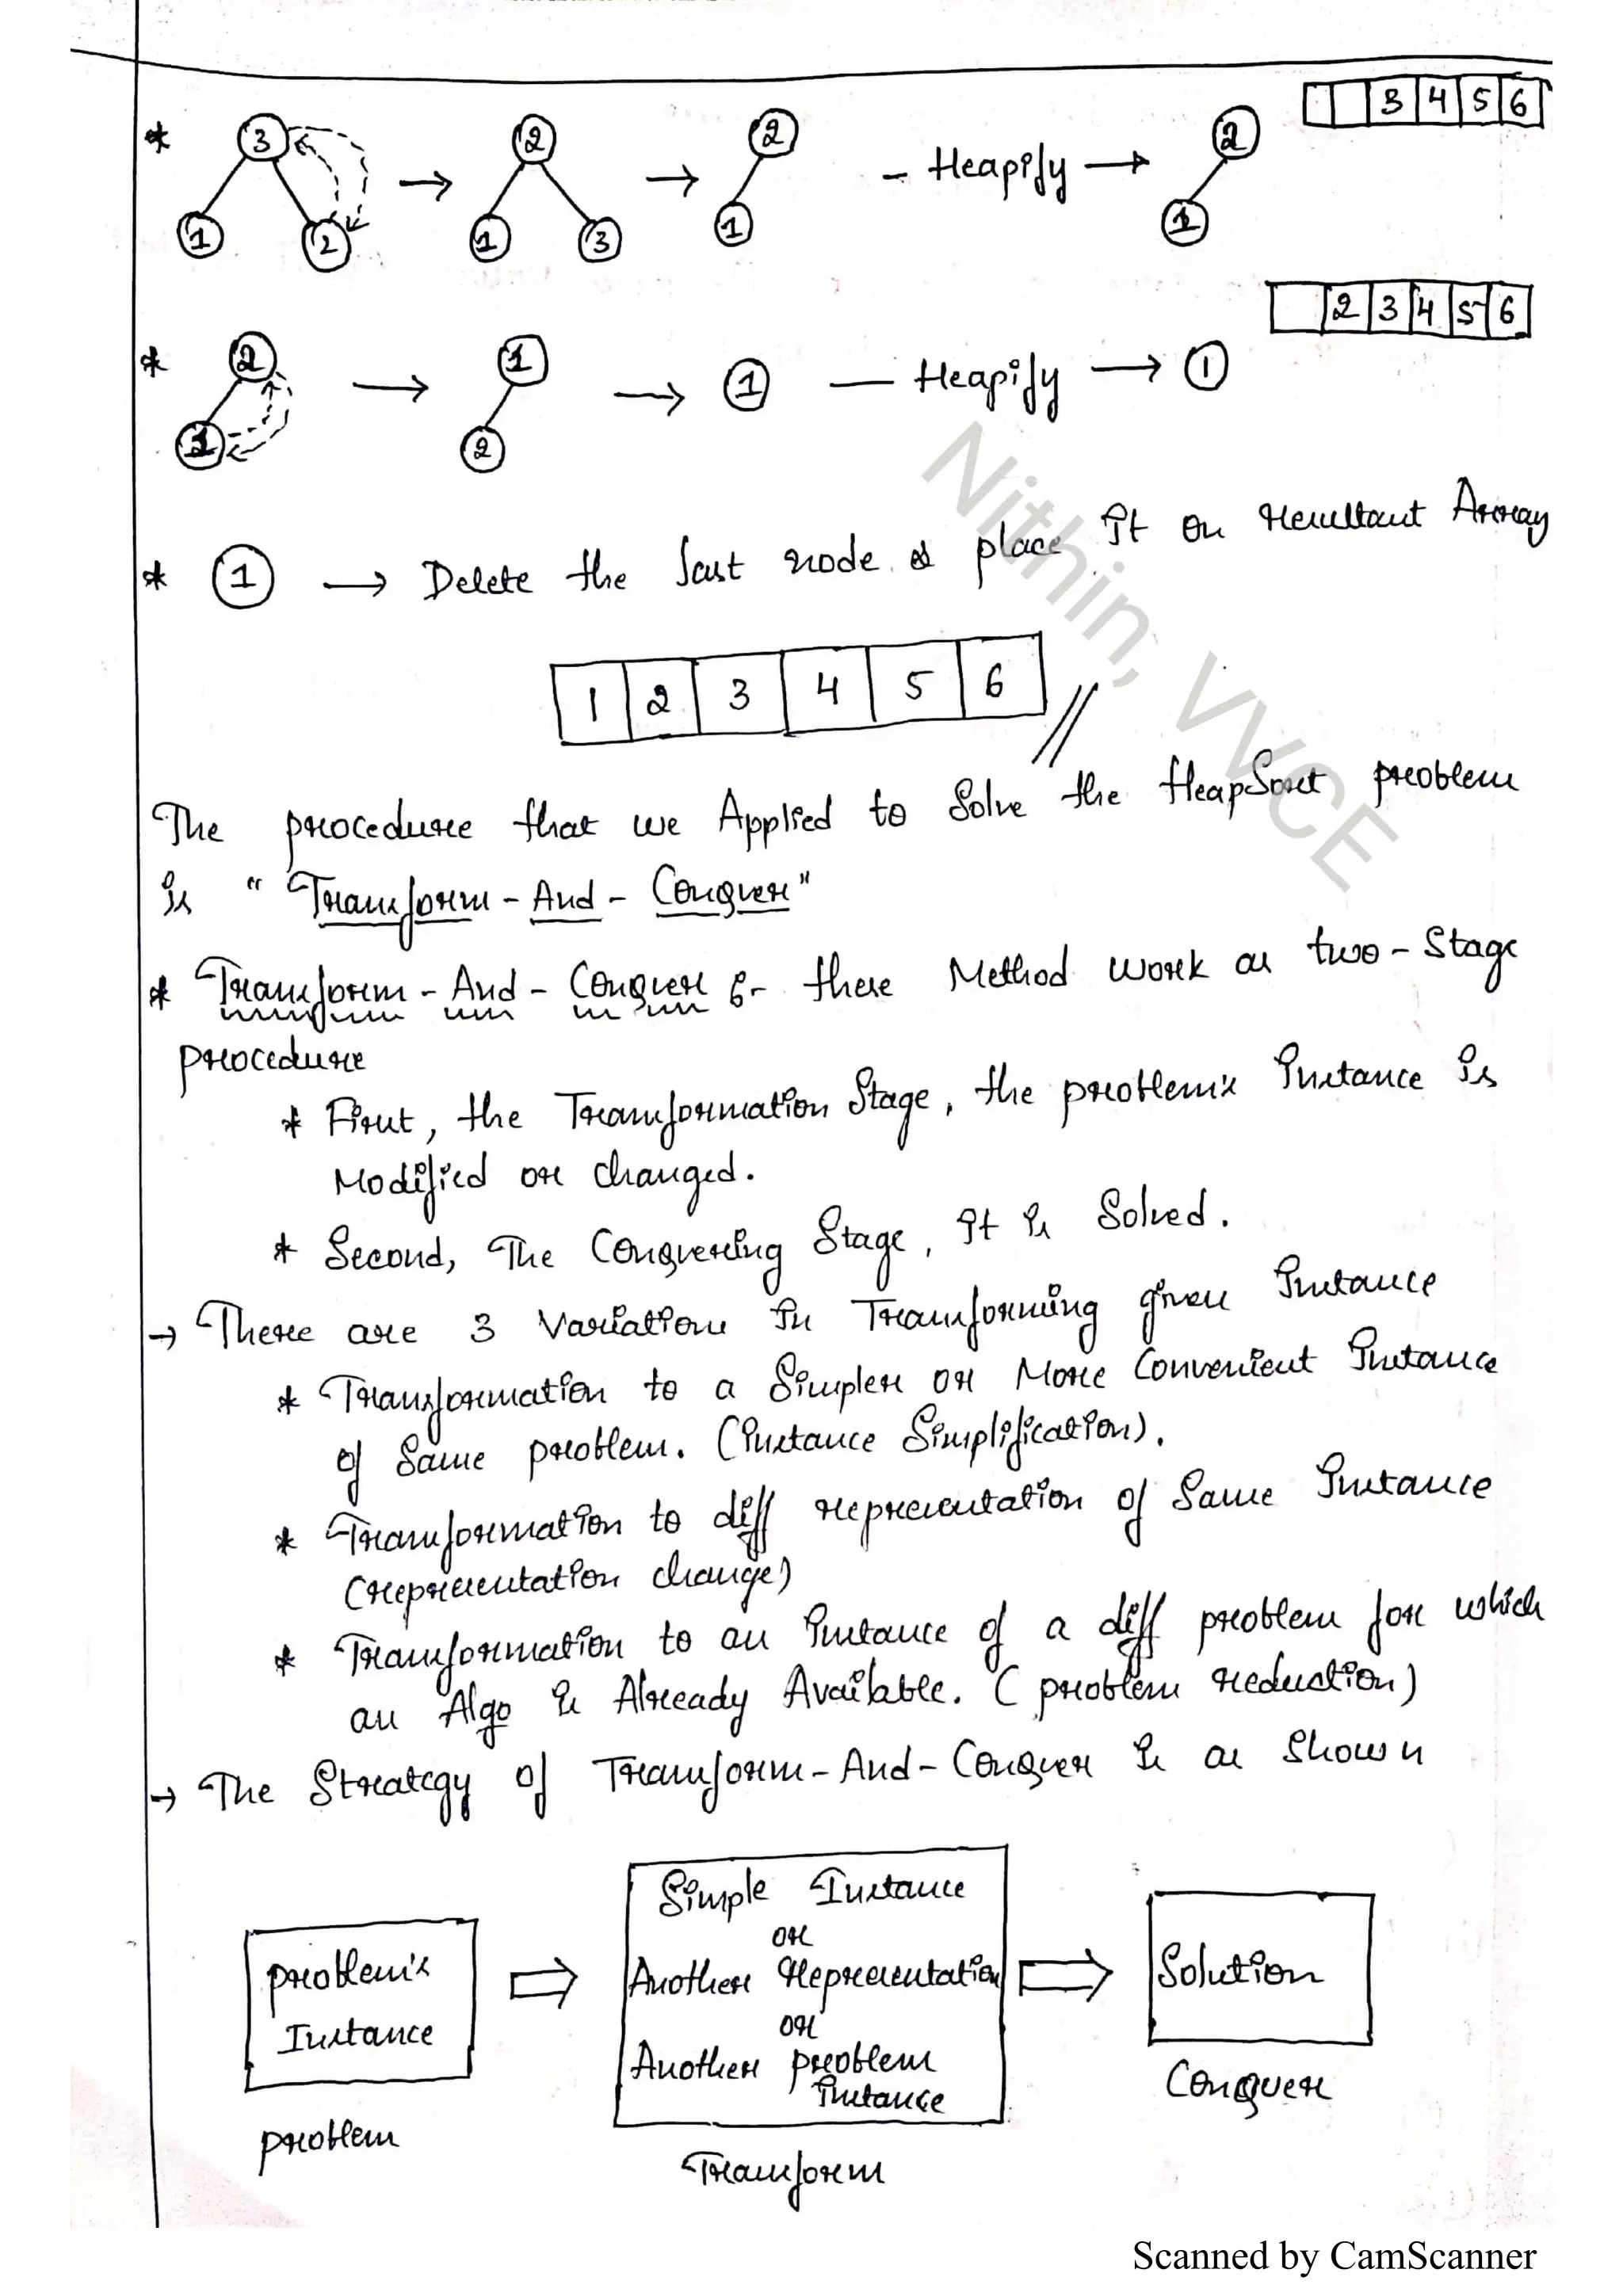 3 4 5 6
* 3 1 2 → 2 1 3 → 2 1 - Heapify → 2 1
2 3 4 5 6
* 2 1 → 1 2 → 1 — Heapify → 1
* 1 → Delete the last node & place it on resultant Array
1 2 3 4 5 6
The procedure that we Applied to Solve the HeapSort problem
is "Transform-And-Conquer"
* Transform-And-Conquer :- these Method work as two-Stage
procedure
* First, the Transformation Stage, the problem's Instance is
Modified or changed.
* Second, The Conquering Stage, It is Solved.
→ There are 3 Variations in Transforming given Instance
* Transformation to a Simpler or More Convenient Instance
of Same problem. (Instance Simplification).
* Transformation to diff representation of Same Instance
(representation change)
* Transformation to an Instance of a diff problem for which
an Algo is Already Available. (problem reduction)
→ The Strategy of Transform-And-Conquer is as Shown
problem's
Instance
problem
Simple Instance
or
Another Representation
or
Another problem
Instance
Transform
Solution
Conquer
Nithin, VVCE
Scanned by CamScanner